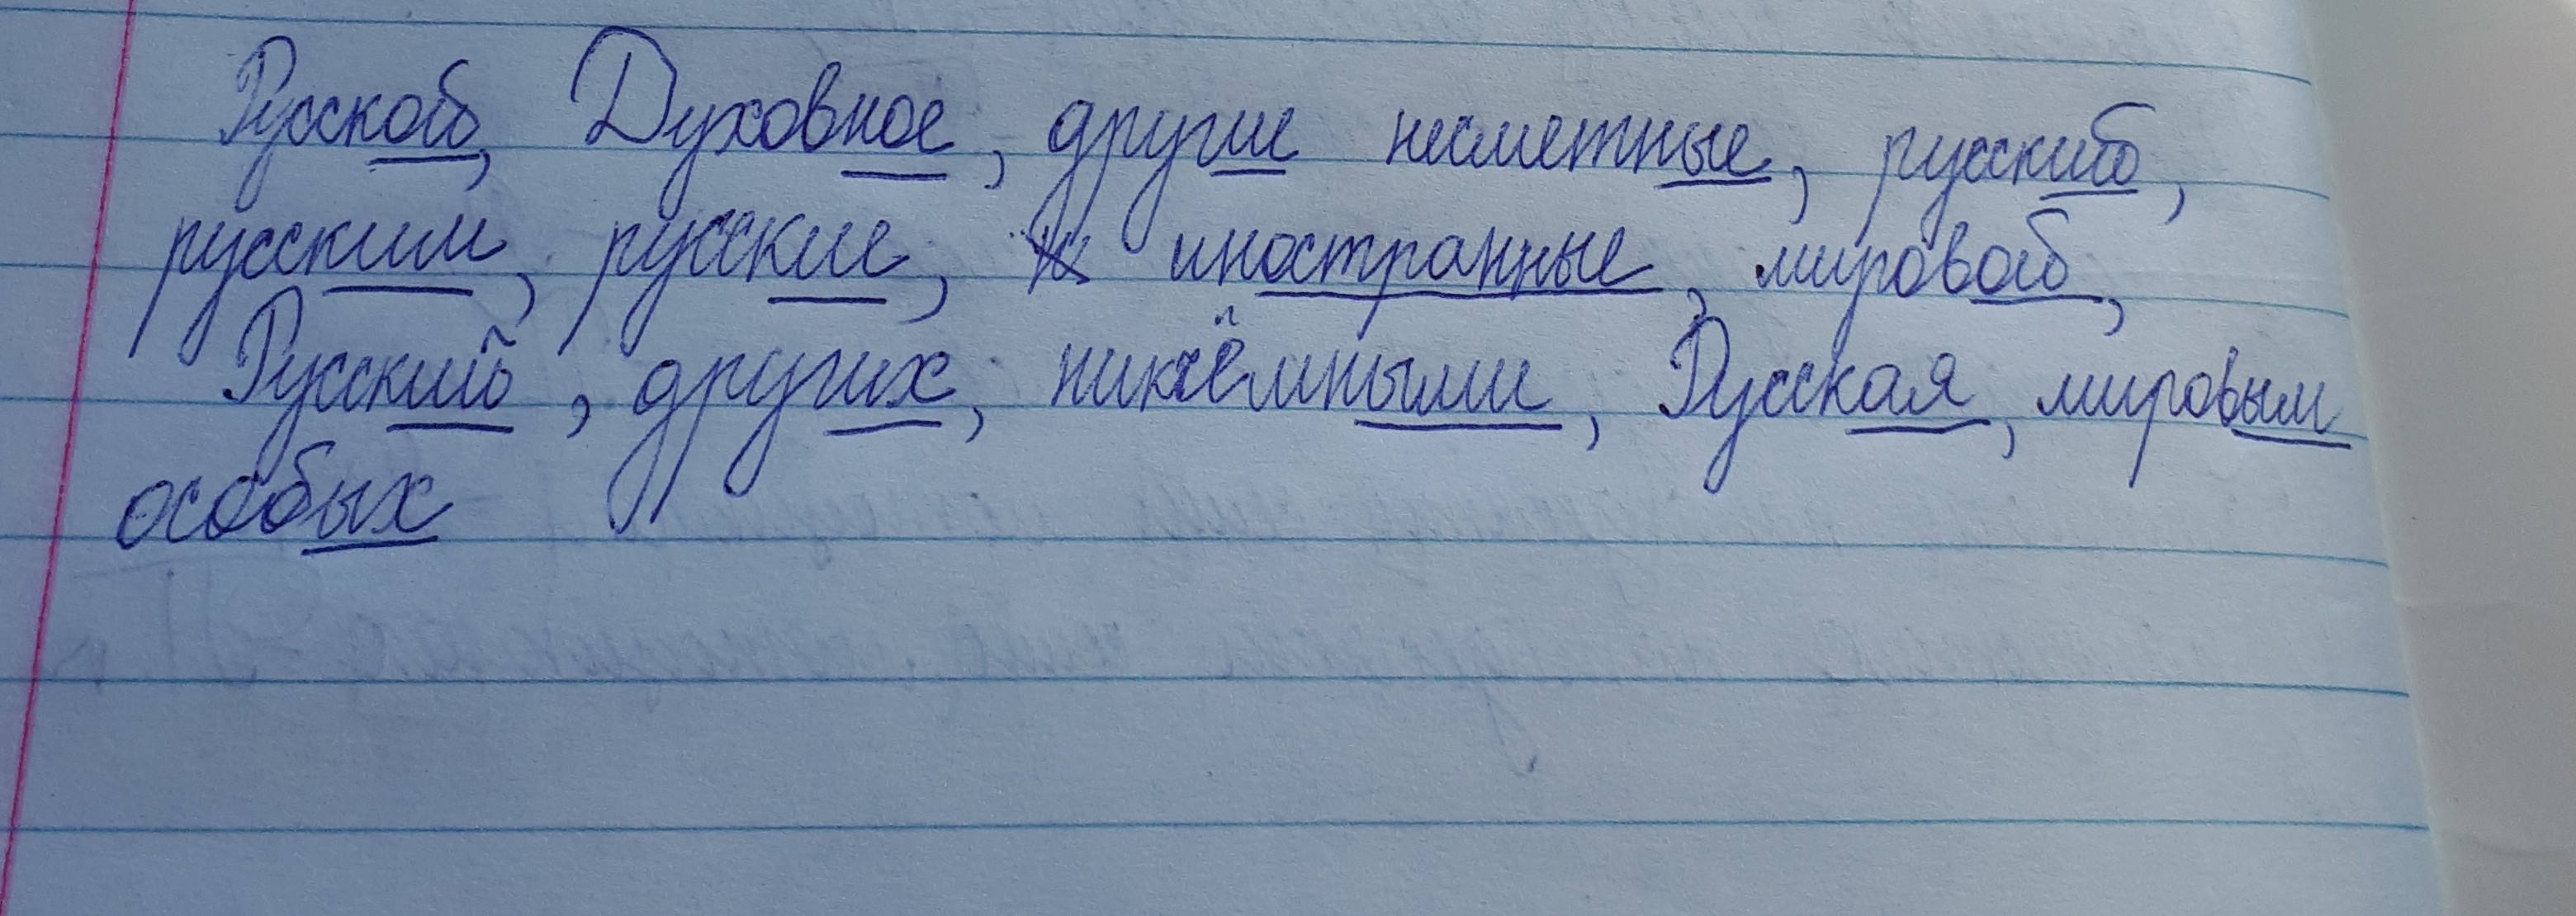 Русской, Духовное, другие несметные, русский,
русским, русские, иностранные, мировой,
Русский, других, никчёмными, Русская, мировым
особых